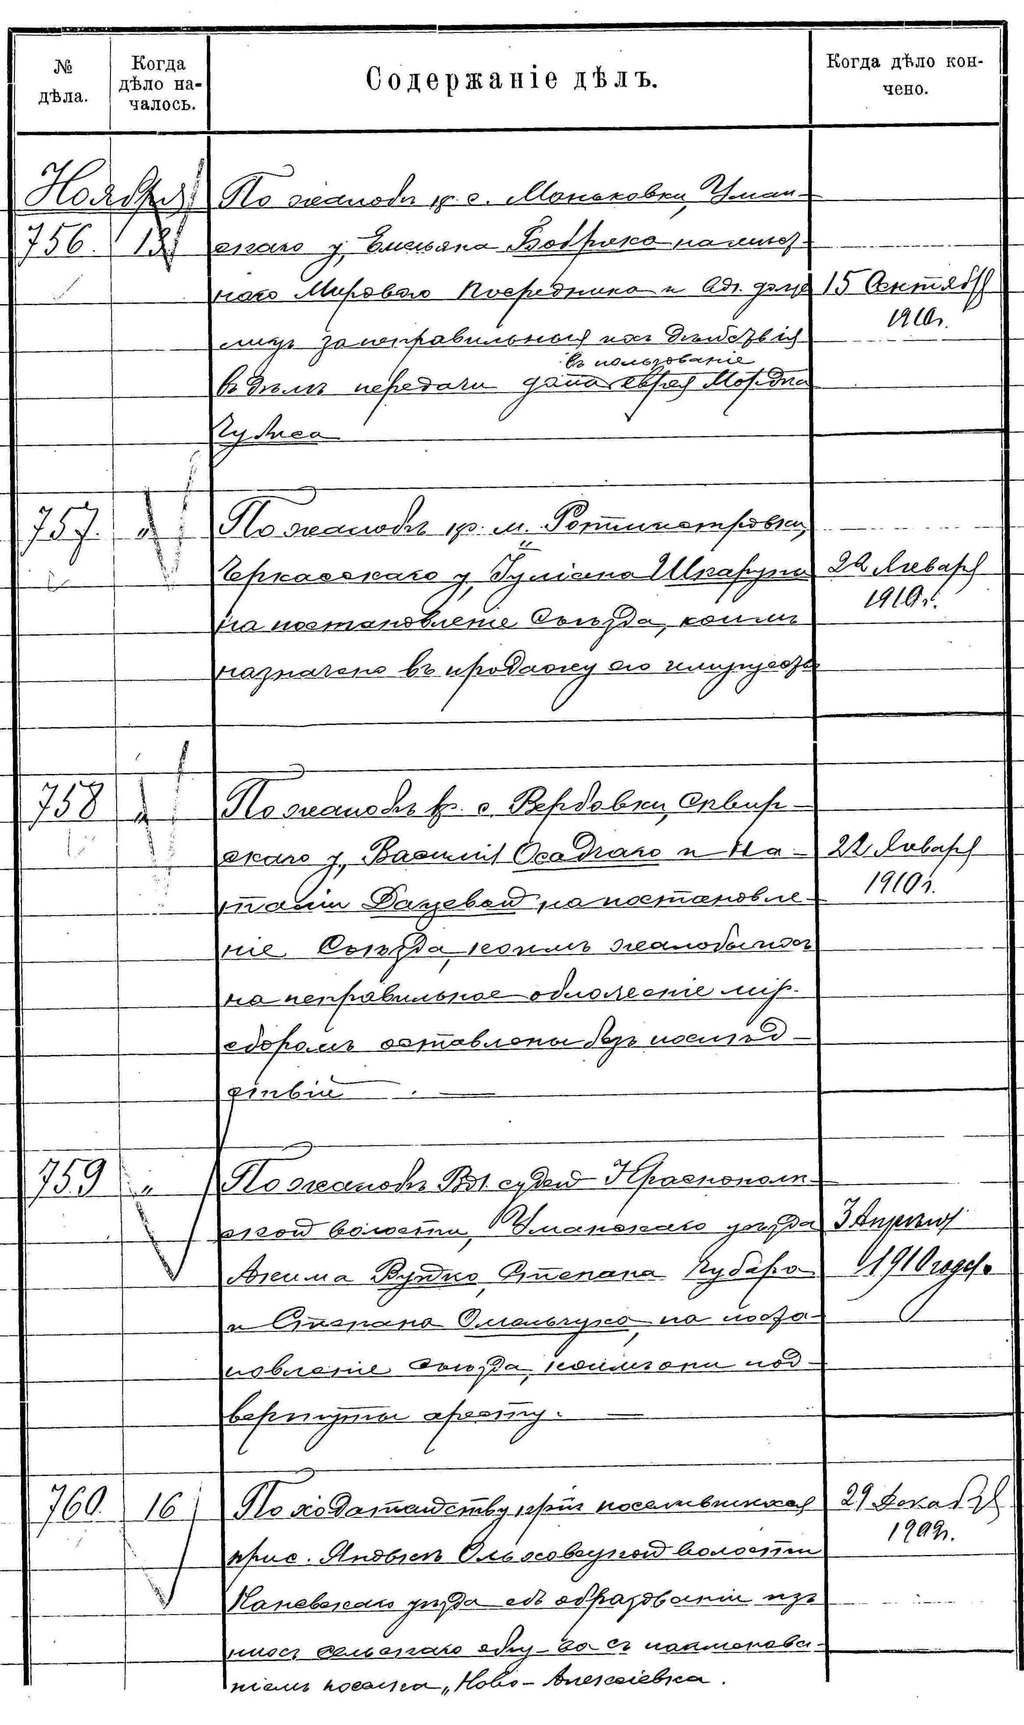 № дѣла.
Когда дѣло на-чалось.
Содержаніе дѣлъ.
Когда дѣло кон-чено.
Ноября
756. 13
По жалобѣ кр. с. Маньковки, Уман-
скаго у., Емельяна Бобряка на мѣст-
наго Мирового Посредника и
лицъ за неправильныя ихъ дѣйствія
въ пользованіе
въ дѣлѣ передачи дома еврея Мордка
15 Сентября
1910г.
757. "
По жалобѣ кр. м. Ротмистровки,
Черкасскаго у., Іуліана Шкарупы
на постановленіе Съѣзда, коимъ
назначено въ продажу его имущество
22 Января
1910г.
758 "
По жалобѣ кр. с. Вербовки, Сквир-
скаго у., Василія Осадчаго и На-
таліи Дацевой на постановле-
ніе Съѣзда, коимъ жалобы ихъ
на неправильное обложеніе мір.
сборомъ оставлены безъ послѣд-
ствій. —
22 Января
1910г.
759 "
По жалобѣ Вол. судей Краснополь-
ской волости, Уманскаго уѣзда
Акима Рудко, Степана Чубара
и Степана Омельчука, на поста-
новленіе Съѣзда, коимъ они под-
вергнуты аресту. —
3 Апрѣля
1910 года.
760. 16
По ходатайству, поселившихся
при с. Яновкѣ Ольховецкой волости
Каневскаго уѣзда объ образованіи изъ
нихъ сельскаго общ-ва съ наименова-
ніемъ поселка „Ново-Алексѣевка.
29 Декабря
1909г.